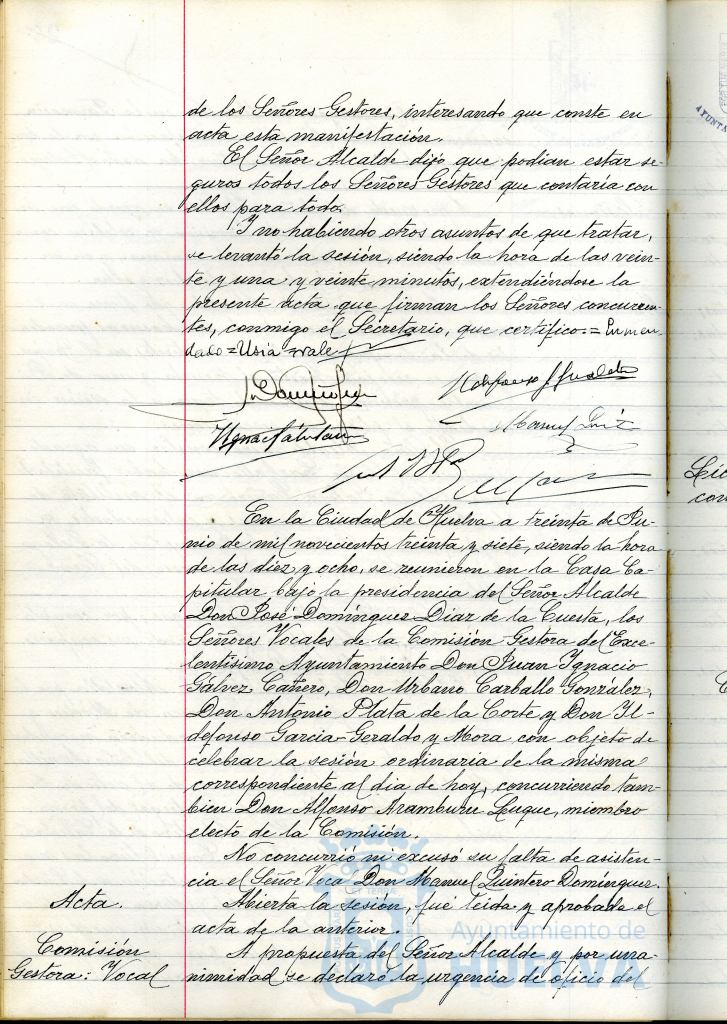 de los Señores Gestores, interesando que conste en
acta esta manifestación.
El Señor Alcalde dijo que podian estar se-
guros todos los Señores Gestores que contaría con
ellos para todo.
Y no habiendo otros asuntos de que tratar,
se levantó la sesión, siendo la hora de las vein-
te y una y veinte minutos, extendiéndose la
presente acta que firman los Señores concurren-
tes, conmigo el Secretario, que certifico.= Enmen-
dado = Usia = vale
En la Ciudad de Huelva a treinta de Ju-
nio de mil novecientos treinta y siete, siendo la hora
de las diez y ocho, se reunieron en la Casa Ca-
pitular bajo la presidencia del Señor Alcalde
Don José Domínguez Diaz de la Cuesta, los
Señores Vocales de la Comisión Gestora del Exce-
lentísimo Ayuntamiento Don Juan Ignacio
Gálvez Cañero, Don Urbano Carballo González,
Don Antonio Plata de la Corte y Don Il-
defonso Garcia-Geraldo y Mora con objeto de
celebrar la sesión ordinaria de la misma
correspondiente al dia de hoy, concurriendo tam-
bien Don Alfonso Aramburu Luque, miembro
electo de la Comisión.
No concurrió ni excusó su falta de asisten-
cia el Señor Vocal Don Manuel Quintero Domínguez.
Acta.
Abierta la sesión, fué leida y aprobada el
acta de la anterior.
Comisión
Gestora: Vocal
A propuesta del Señor Alcalde y por una-
nimidad se declaró la urgencia de oficio del
Ayuntamiento de
HUELVA